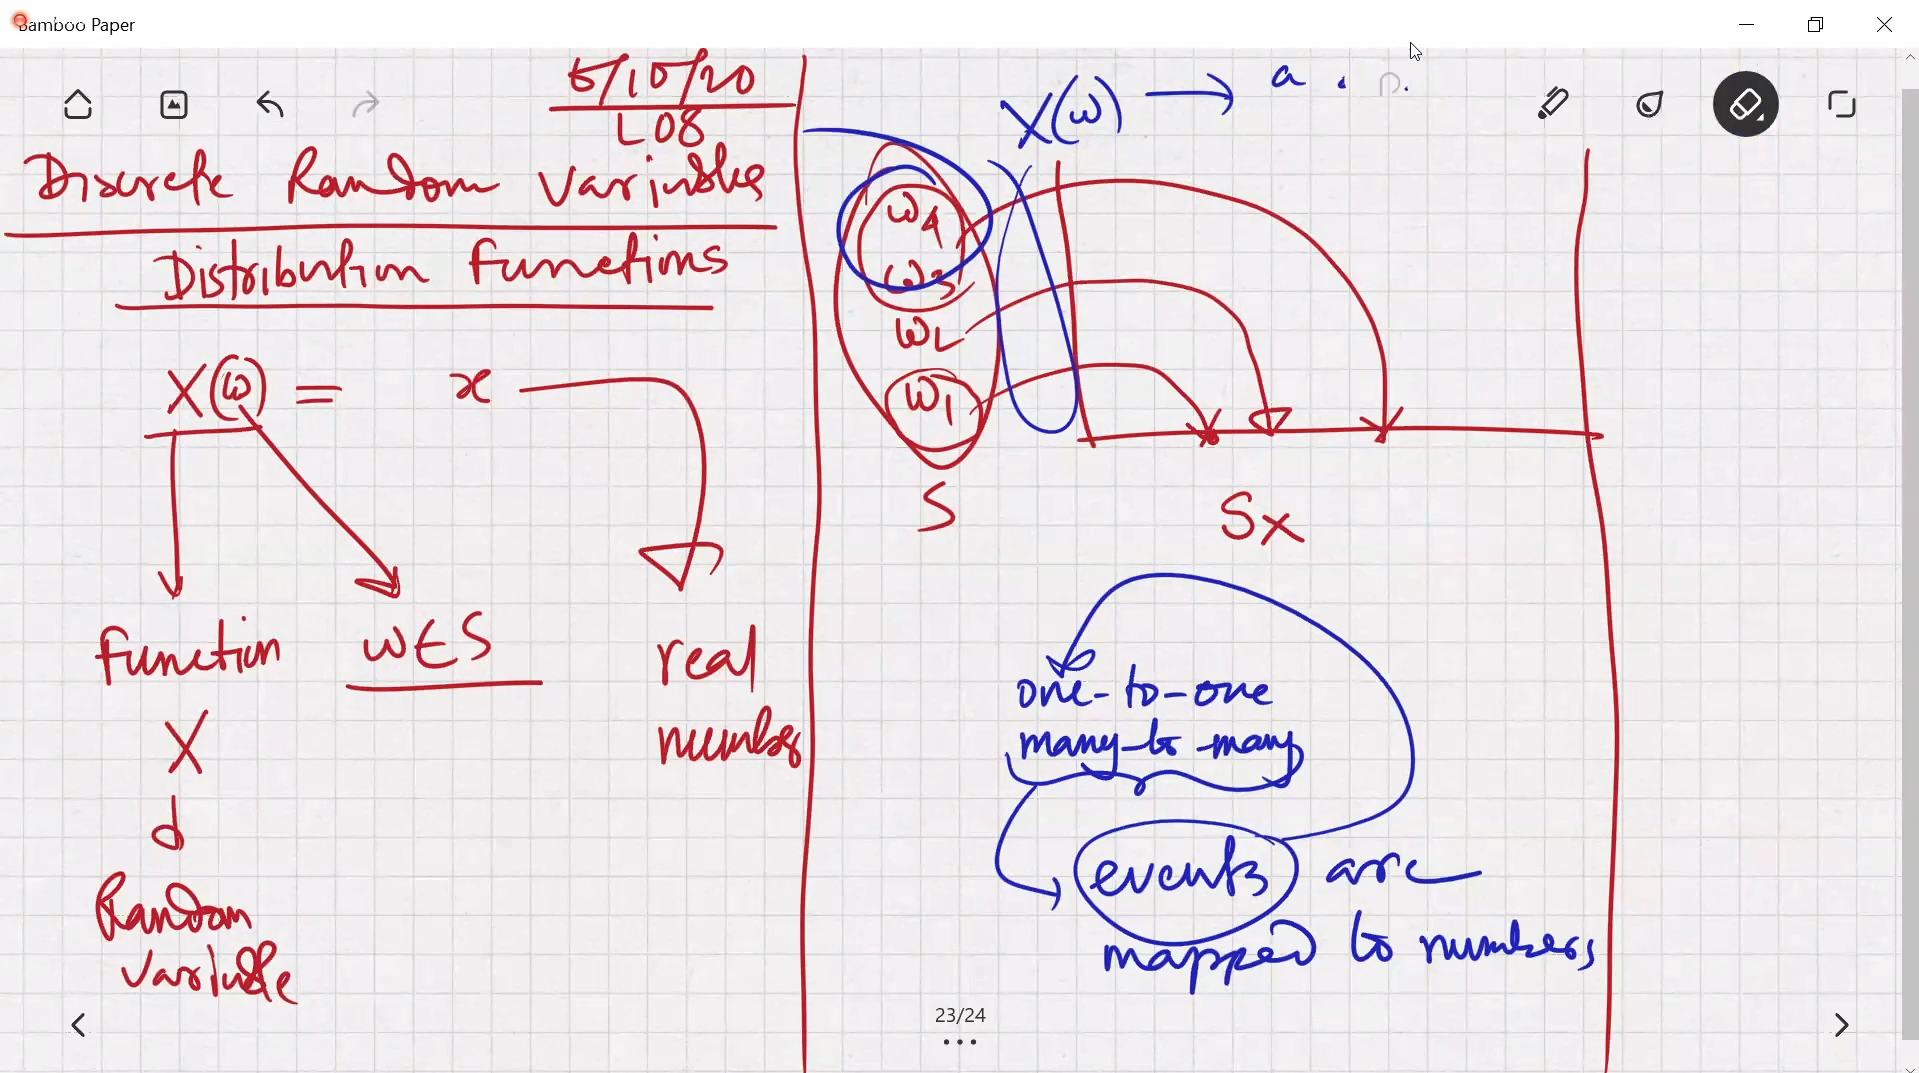 Bamboo Paper
5/10/20
L08
Discrete Random Variables
Distribution Functions
X(ω) = x
function
X
Random
Variable
ω∈S
real
number
X(ω) → a
ω4
ω3
ω2
ω1
S
Sx
one-to-one
many-to-many
events are
mapped to numbers
23/24